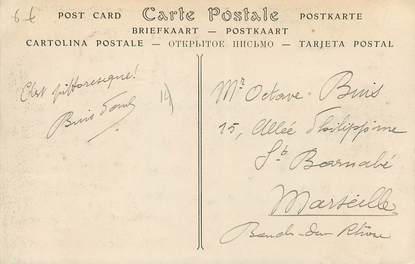 6 f
POST CARD Carte Postale POSTKARTE
BRIEFKAART — POSTKAART
CARTOLINA POSTALE — ОТКРЫТОЕ ПИСЬМО — TARJETA POSTAL
C'est pittoresque!
Buis
14
Mr Octave Buis
15, Allée Philippine
St Barnabé
Marseille
Bouches-du-Rhône